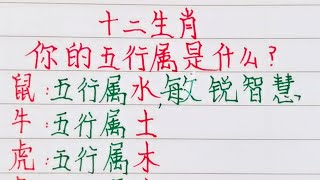 十二生肖
你的五行属是什么?
鼠:五行属水,敏锐智慧
牛:五行属土
虎:五行属木